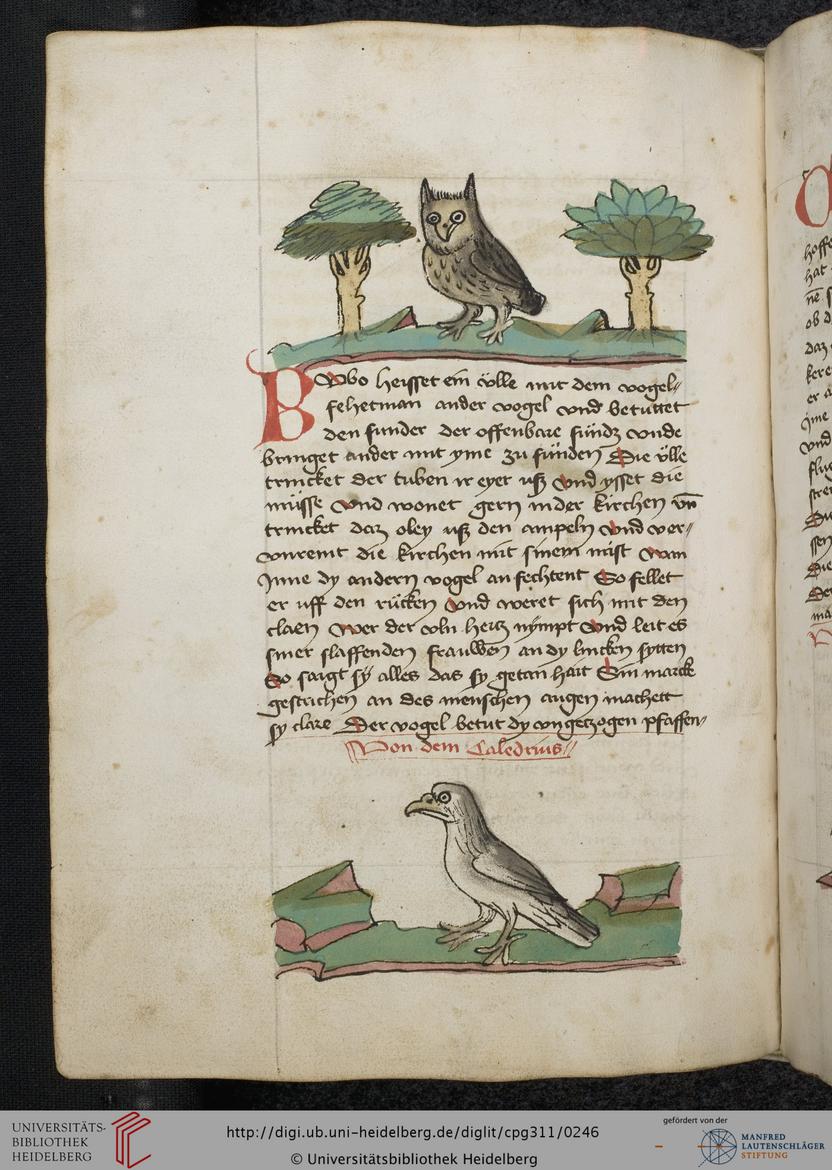 Bubo heisset ein ülle mit dem vogel
fehetman ander vogel vnd betuttet
den sunder der offenbare sündz vnde
bringet ander mit yme zu sünden Die ülle
trincket der tuben ir eyer uß vnd ysset die
müsse vnd wonet gern inder kirchen vn̄
trincket daz oley uß den ampeln vnd ver-
vnreint die kirchen mit sinem mist wan
Inne dy andern vogel anfechtent So fellet
er uff den rücken vnd weret sich mit den
claen wer der vln hertz nympt vnd leit es
siner slaffenden frauwen an dy lincken sytten
So sargt sÿ alles das sy getan hait Sin marck
gestrichen an des menschen augen machett
sy clare Der vogel betut dy vngetzogen pfaffen
Von dem Caledrius
UNIVERSITÄTS-
BIBLIOTHEK
HEIDELBERG
http://digi.ub.uni-heidelberg.de/diglit/cpg311/0246
© Universitätsbibliothek Heidelberg
gefördert von der
MANFRED
LAUTENSCHLÄGER
STIFTUNG